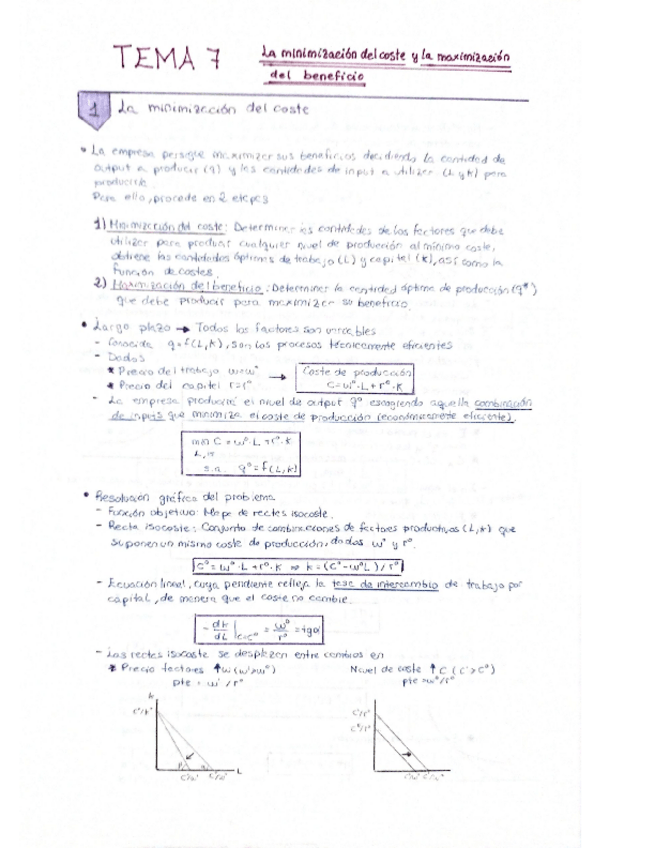 TEMA 7 La minimización del coste y la maximización
del beneficio
1 La minimización del coste
• La empresa persigue maximizar sus beneficios decidiendo la cantidad de
output a producir (q) y las cantidades de input a utilizar (L y k) para
producirla.
Para ello, procede en 2 etapas
1) Minimización del coste: Determinar las cantidades de los factores que debe
utilizar para producir cualquier nivel de producción al mínimo coste,
obtiene las cantidades óptimas de trabajo (L) y capital (k), así como la
función de costes.
2) Maximización del beneficio: Determinar la cantidad óptima de producción (q*)
que debe producir para maximizar su beneficio
• Largo plazo → Todos los factores son variables
- Conocida q=f(L,k), son los procesos técnicamente eficientes
- Dados
* Precio del trabajo w=w⁰ → Coste de producción
* Precio del capital r=r⁰ C=w⁰·L+r⁰·k
- La empresa producirá el nivel de output q⁰ escogiendo aquella combinación
de inputs que minimiza el coste de producción (económicamente eficiente).
min C = w⁰·L+r⁰·k
L,k
s.a. q⁰=f(L,k)
• Resolución gráfica del problema
- Función objetivo: Mapa de rectas isocoste.
- Recta isocoste: Conjunto de combinaciones de factores productivos (L,k) que
suponen un mismo coste de producción, dados w⁰ y r⁰.
C⁰=w⁰·L+r⁰·k ⇒ k=(C⁰-w⁰L)/r⁰
- Ecuación lineal, cuya pendiente refleja la tasa de intercambio de trabajo por
capital, de manera que el coste no cambie.
-dk/dL |c=c⁰ = w⁰/r⁰ = tgα
- Las rectas isocoste se desplazan ante cambios en
* Precio factores ↑w (w'>w⁰) Nivel de coste ↑C (C'>C⁰)
pte = w'/r⁰ pte = w⁰/r⁰
k
L